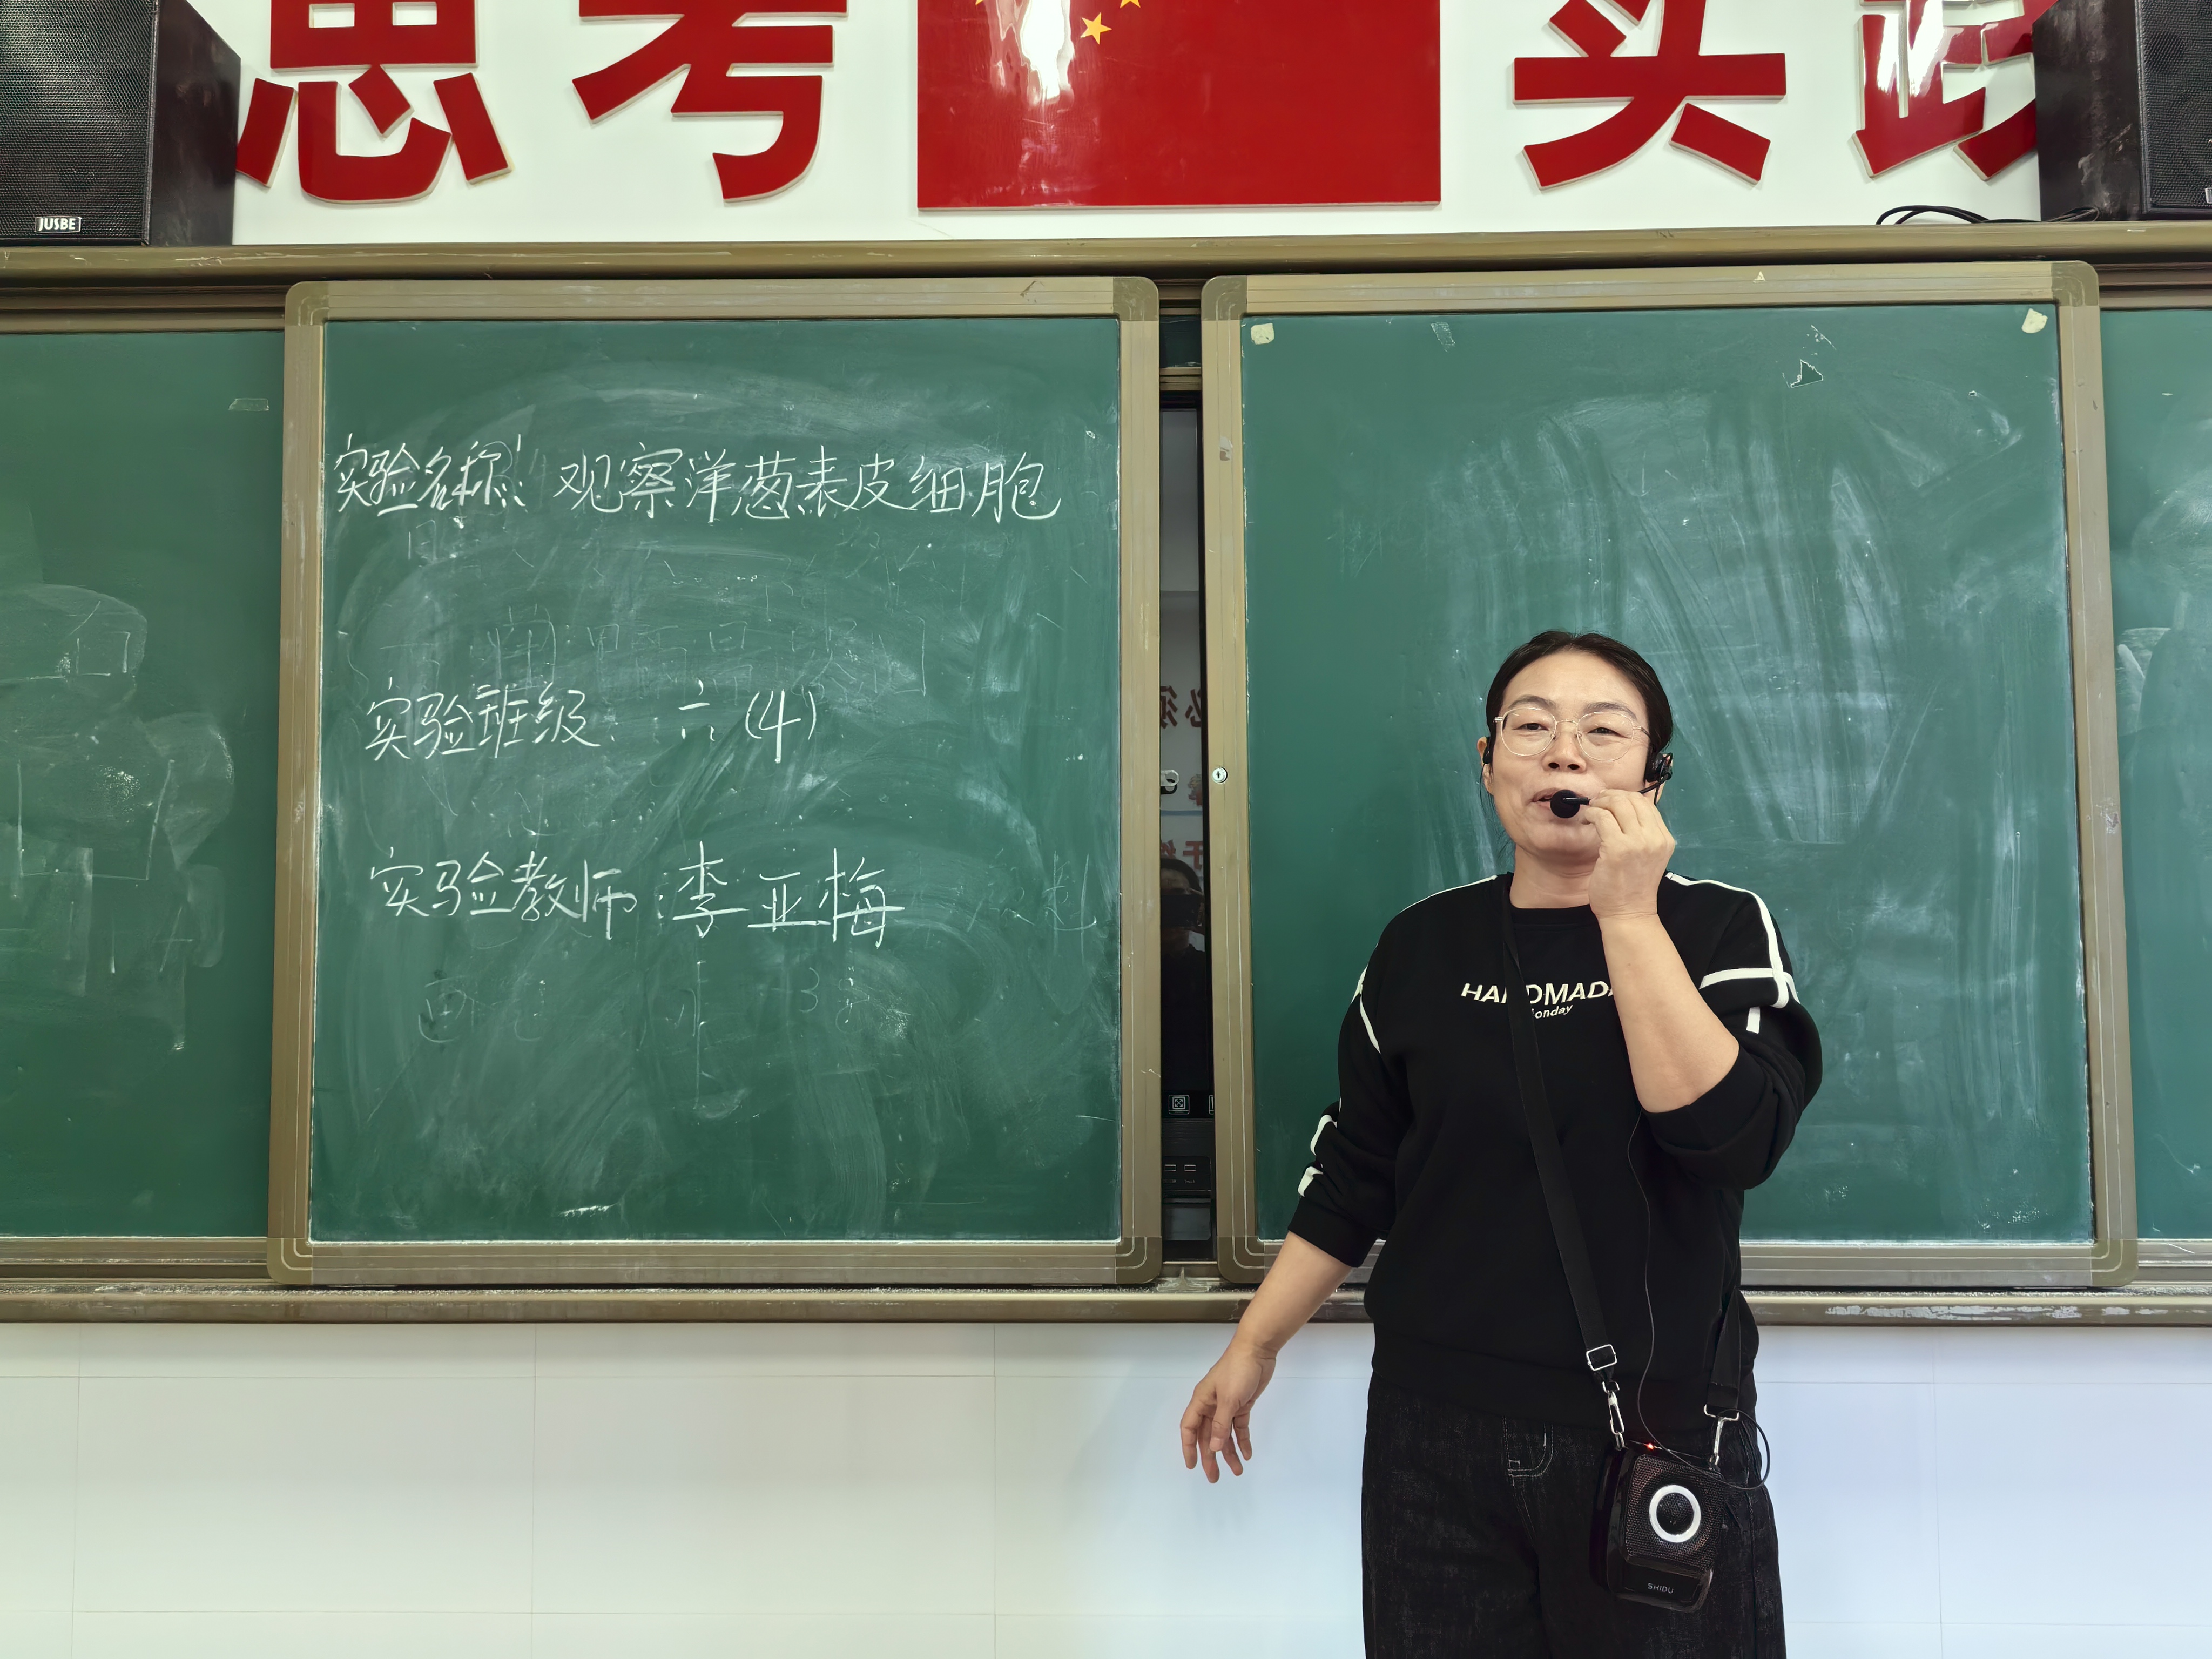 思考 实践
JUSBE
实验名称: 观察洋葱表皮细胞
实验班级: 六(4)
实验教师:李亚梅
HANDMADE
Monday
SHIDU